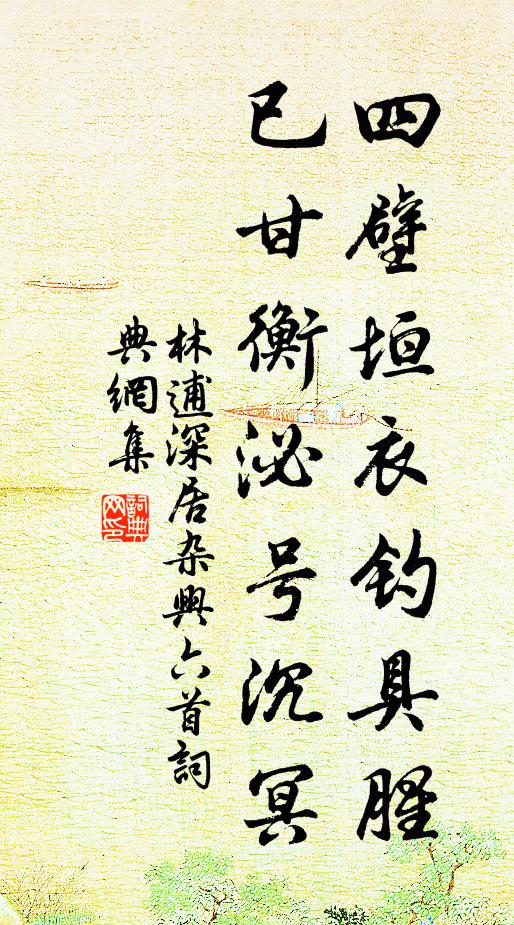 四壁垣衣钓具腥
已甘衡泌号沉冥
林逋深居杂興六首詞
典網集
詞典
网印